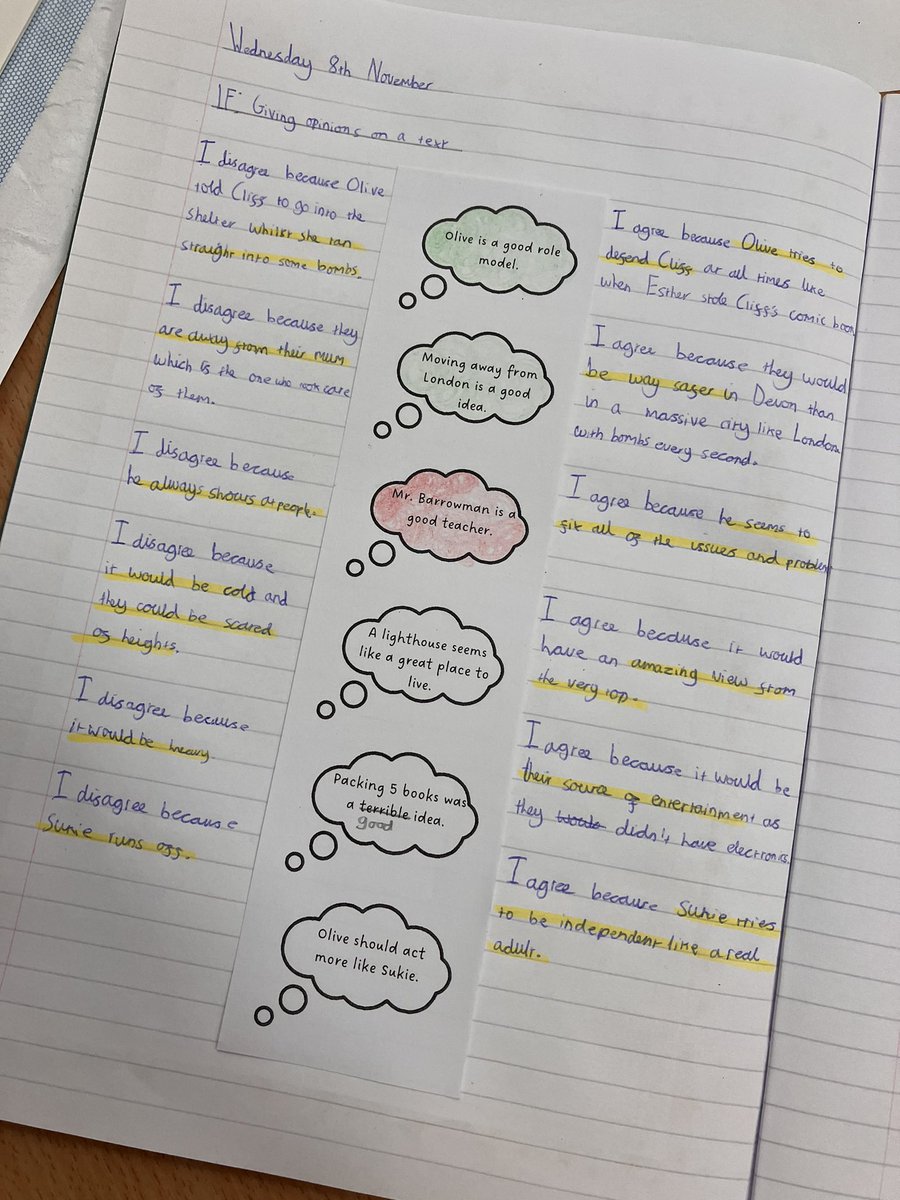 Wednesday 8th November
IF: Giving opinions on a text
I disagree because Olive
told Cliff to go into the
shelter whilst she ran
straight into some bombs.
I disagree because they
are away from their mum
which is the one who took care
of them.
I disagree because
he always shouts at people.
I disagree because
it would be cold and
they could be scared
of heights.
I disagree because
it would be heavy.
I disagree because
Sukie runs off.
Olive is a good role
model.
Moving away from
London is a good
idea.
Mr. Barrowman is a
good teacher.
A lighthouse seems
like a great place to
live.
Packing 5 books was
a terrible idea.
good
Olive should act
more like Sukie.
I agree because Olive tries to
defend Cliff at all times like
when Esther stole Cliff's comic book
I agree because they would
be way safer in Devon than
in a massive city like London
with bombs every second.
I agree because he seems to
fix all of the issues and problems
I agree because it would
have an amazing view from
the very top.
I agree because it would be
their source of entertainment as
they would didn't have electronics.
I agree because Sukie tries
to be independent like a real
adult.